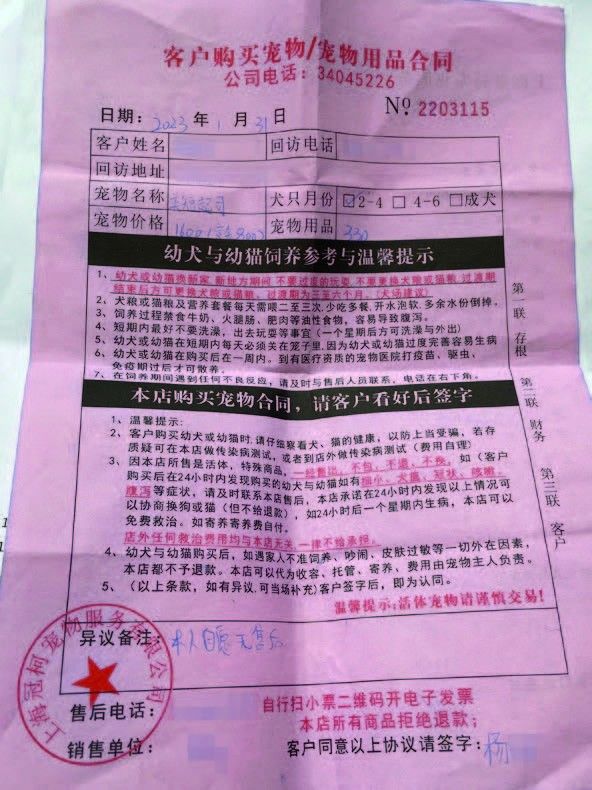 客户购买宠物/宠物用品合同
公司电话：34045226
日期：2023年1月31日
№ 2203115
客户姓名 回访电话
回访地址
宠物名称 犬只月份 ☑2-4 □4-6 □成犬
宠物价格 宠物用品 330
幼犬与幼猫饲养参考与温馨提示
1、幼犬或幼猫换新家，新地方期间，不要过渡的玩耍，不要更换犬粮或猫粮，过渡期
结束后方可更换犬粮或猫粮，过渡期为三至六个月。（犬场建议）
2、犬粮或猫粮及营养套餐每天需喂二至三次，少吃多餐，开水泡软，多余水份倒掉。
3、饲养过程禁食牛奶、火腿肠、肥肉等油性食物，容易导致腹泻。
4、短期内最好不要洗澡，出去玩耍等事宜（一个星期后方可洗澡与外出）
5、幼犬或幼猫在短期内每天必须关在笼子里，因为幼犬或幼猫过度完善容易生病
6、幼犬或幼猫在购买后在一周内。到有医疗资质的宠物医院打疫苗、驱虫、
免疫期过后才可散养。
7、在饲养期间遇到任何不良反应，请及时与售后人员联系，电话在右下角。
本店购买宠物合同，请客户看好后签字
1、温馨提示：
2、客户购买幼犬或幼猫时，请仔细察看犬、猫的健康，以防上当受骗，若存
质疑可在本店做传染病测试，或者到店外做传染病测试（费用自理）
3、因本店所售是活体，特殊商品，一经售出，不包、不退、不换，如（客户
购买后在24小时内发现购买的幼犬与幼猫如有细小、犬瘟、冠状、咳嗽、
腹泻等症状，请及时联系本店售后，本店承诺在24小时内发现以上情况可
以协商换狗或猫（但不给退款），如24小时后一个星期内生病，本店可以
免费救治。如寄养寄养费自付。
店外任何救治费用均与本店无关 一律不给承担。
4、幼犬与幼猫购买后，如遇家人不准饲养，吵闹、皮肤过敏等一切外在因素，
本店都不予退款。本店可以代为收容、托管、寄养、费用由宠物主人负责。
5、（以上条款，如有异议，可当场补充）客户签字后，即为认同。
温馨提示：活体宠物请谨慎交易！
第一联 存根 第二联 财务 第三联 客户
异议备注：本人自愿无售后
上海冠柯宠物服务有限公司
自行扫小票二维码开电子发票
售后电话：
本店所有商品拒绝退款；
销售单位：
客户同意以上协议请签字：杨